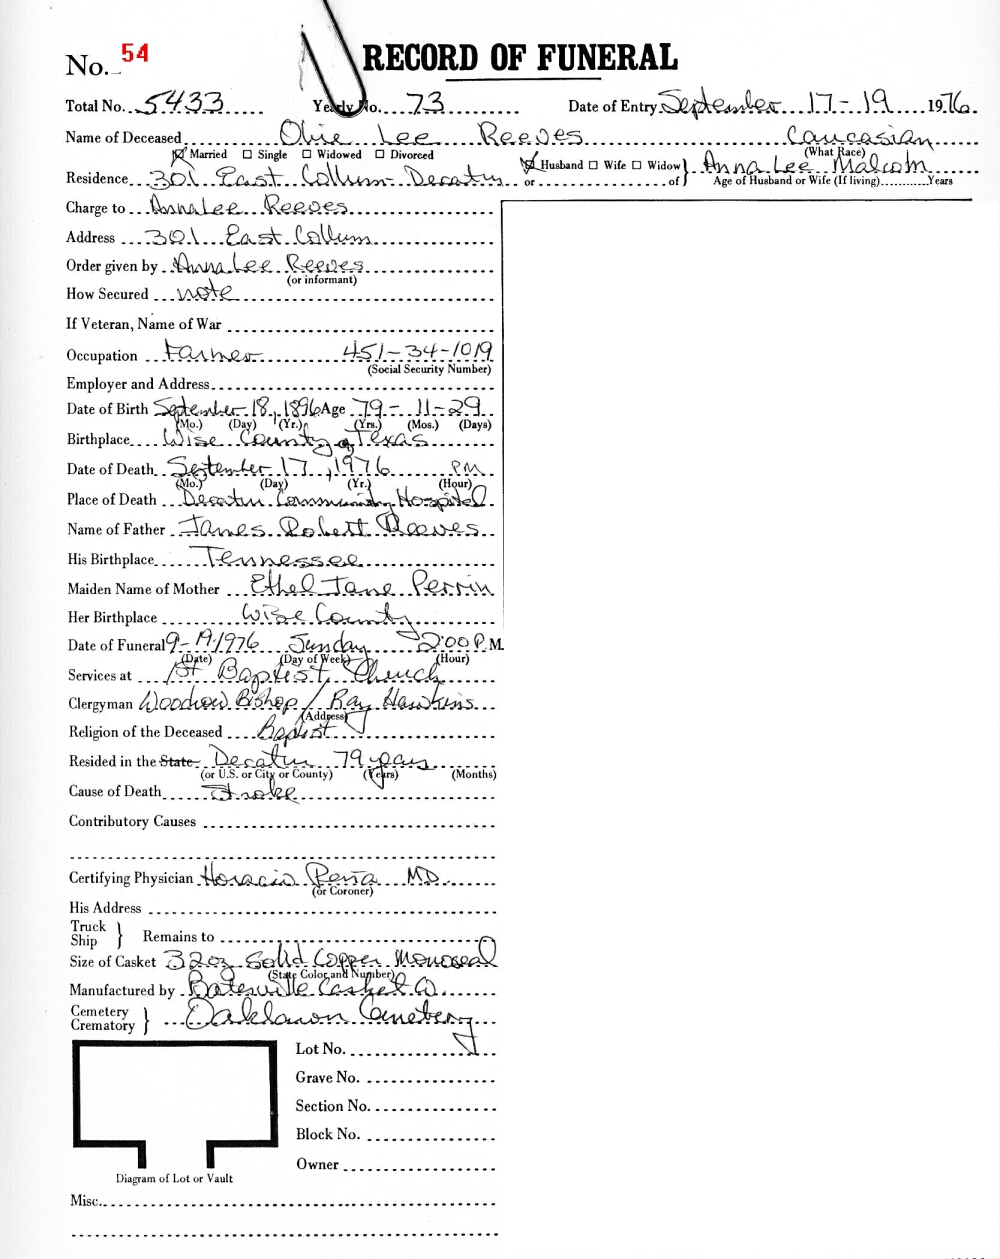 No. 54 RECORD OF FUNERAL
Total No. 5433 Yearly No. 73 Date of Entry September 17-19 1976
Name of Deceased Obie Lee Reeves Caucasian
☒ Married ☐ Single ☐ Widowed ☐ Divorced (What Race)
☒ Husband ☐ Wife ☐ Widow } Anna Lee Malcom
Residence 301 East Collum - Decatur or of Age of Husband or Wife (If living) Years
Charge to Anna Lee Reeves
Address 301 East Collum
Order given by Anna Lee Reeves
(or informant)
How Secured note
If Veteran, Name of War
Occupation Farmer 451-34-1019
(Social Security Number)
Employer and Address
Date of Birth September 18, 1896 Age 79-11-29
(Mo.) (Day) (Yr.) (Yrs.) (Mos.) (Days)
Birthplace Wise County, Texas
Date of Death September 17, 1976 PM
(Mo.) (Day) (Yr.) (Hour)
Place of Death Decatur Community Hospital
Name of Father James Robert Reeves
His Birthplace Tennessee
Maiden Name of Mother Ethel Jane Perrin
Her Birthplace Wise County
Date of Funeral 9-19-1976 Sunday 2:00 P.M.
(Date) (Day of Week) (Hour)
Services at 1st Baptist Church
Clergyman Woodrow Bishop / Ray Hawkins
(Address)
Religion of the Deceased Baptist
Resided in the State Decatur 79 years
(or U.S. or City or County) (Years) (Months)
Cause of Death Stroke
Contributory Causes
Certifying Physician Horacio Peña MD.
(or Coroner)
His Address
Truck
Ship } Remains to
Size of Casket 32oz Solid Copper Monoseal
(State Color and Number)
Manufactured by Batesville Casket Co.
Cemetery
Crematory } Oaklawn Cemetery
Lot No.
Grave No.
Section No.
Block No.
Owner
Diagram of Lot or Vault
Misc.